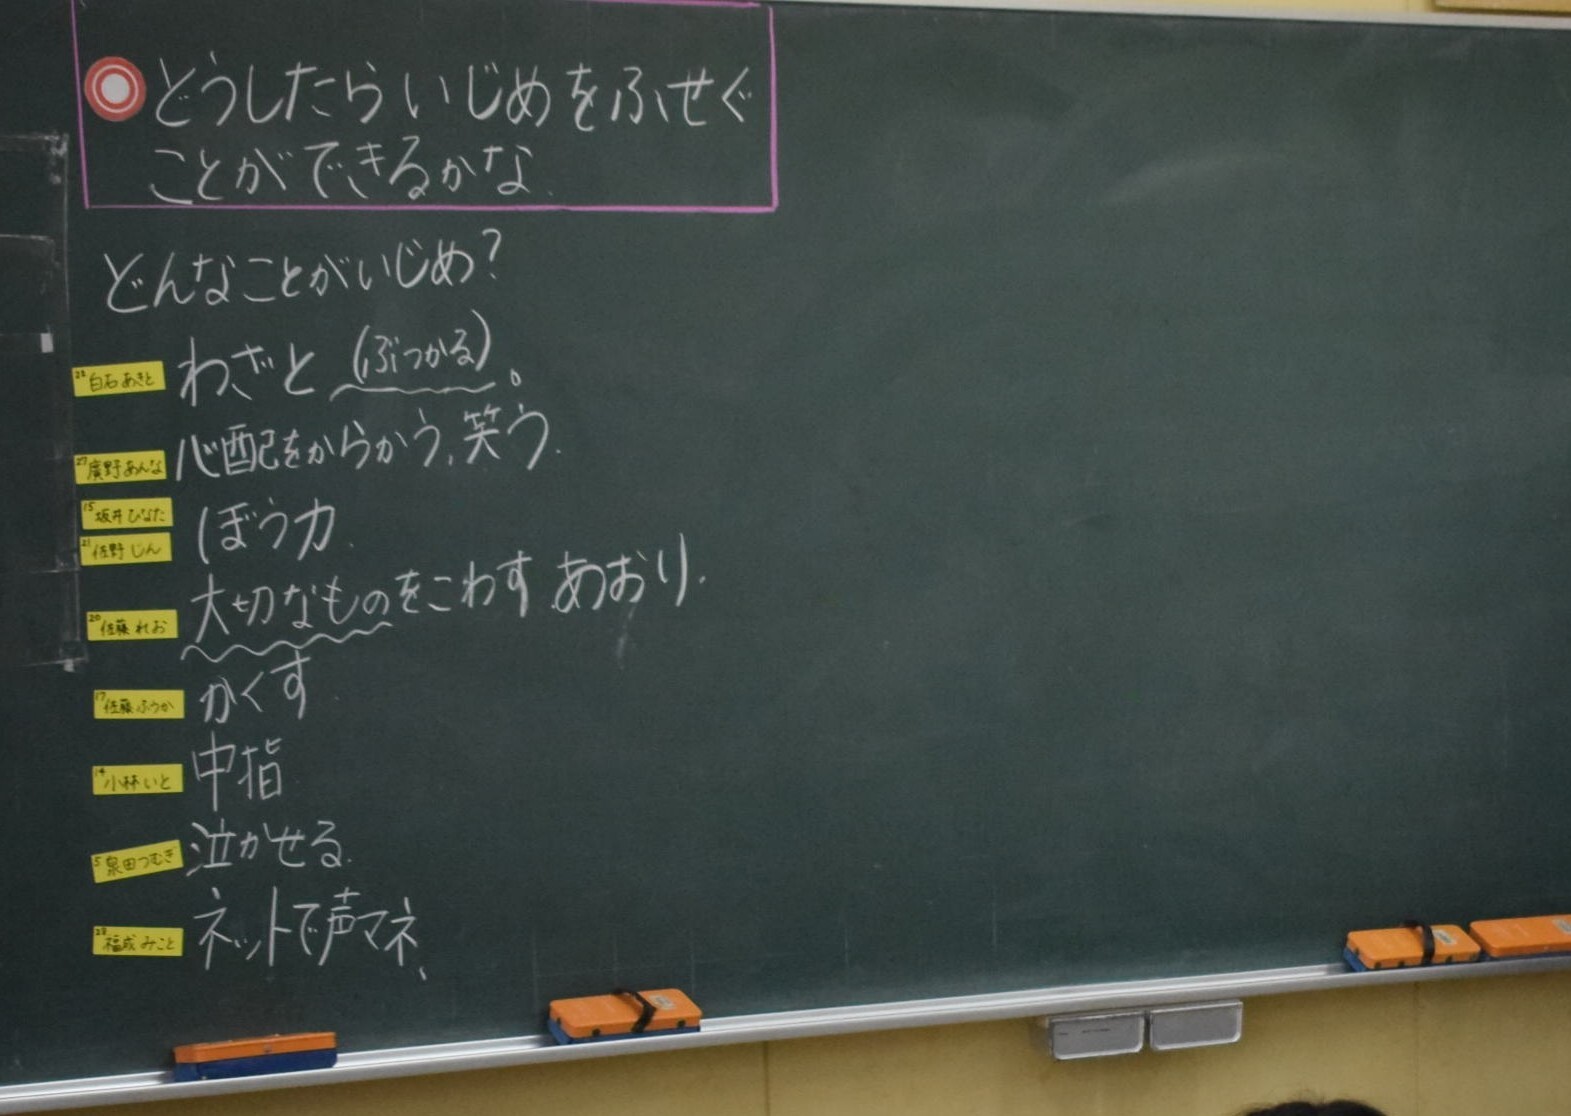 どうしたらいじめをふせぐ
ことができるかな
どんなことがいじめ?
22 白石あきと わざと(ぶつかる)。
27 廣野あんな 心配をからかう、笑う.
15 坂井ひなた
21 佐野じん ぼう力.
20 佐藤れお 大切なものをこわす あおり.
17 佐藤ふうか かくす
14 小林いと 中指
5 泉田つむぎ 泣かせる.
福成みこと ネットで声マネ、